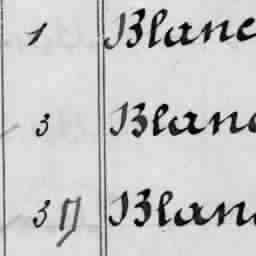 1 Blanc
3 Blanc
3 Blanc